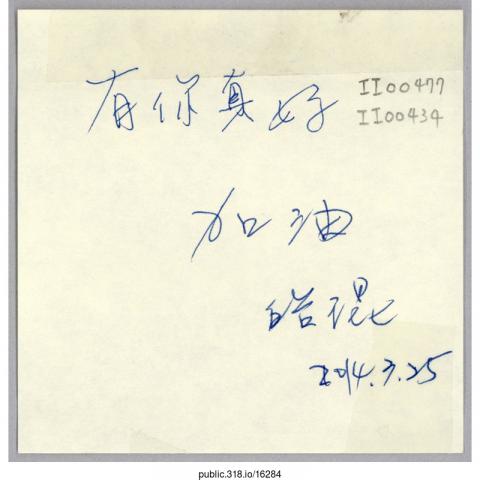 有你真好
II00477
II00434
加油
皓琨
2014.3.25
public.318.io/16284